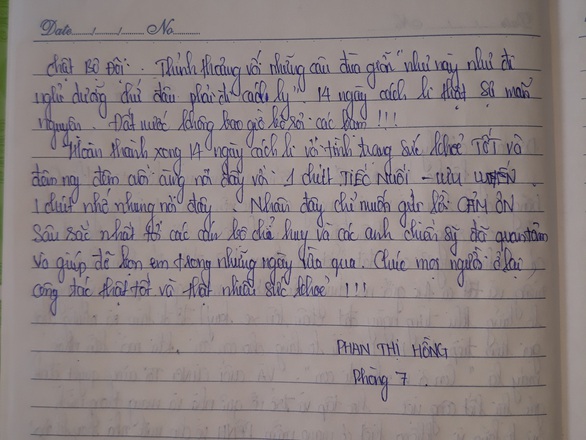 Date / / No
chất Bộ Đội. Thỉnh thoảng với những câu đùa giỡn "như này như đi
nghỉ dưỡng chứ đâu phải đi cách ly. 14 ngày cách li thật sự mãn
nguyện. Đất nước không bao giờ bỏ rơi các bạn !!!
Hoàn thành xong 14 ngày cách li với tình trạng sức khoẻ TỐT và
đêm nay đêm cuối cùng nơi đây với 1 chút TIẾC NUỐI - LƯU LUYẾN.
1 chút nhớ nhung nơi đây. Nhân đây chỉ muốn gửi lời CẢM ƠN
sâu sắc nhất tới các cán bộ chỉ huy và các anh chiến sỹ đã quan tâm
và giúp đỡ bọn em trong những ngày vừa qua. Chúc mọi người ở lại,
công tác thật tốt và thật nhiều sức khoẻ !!!
PHAN THỊ HỒNG
Phòng 7